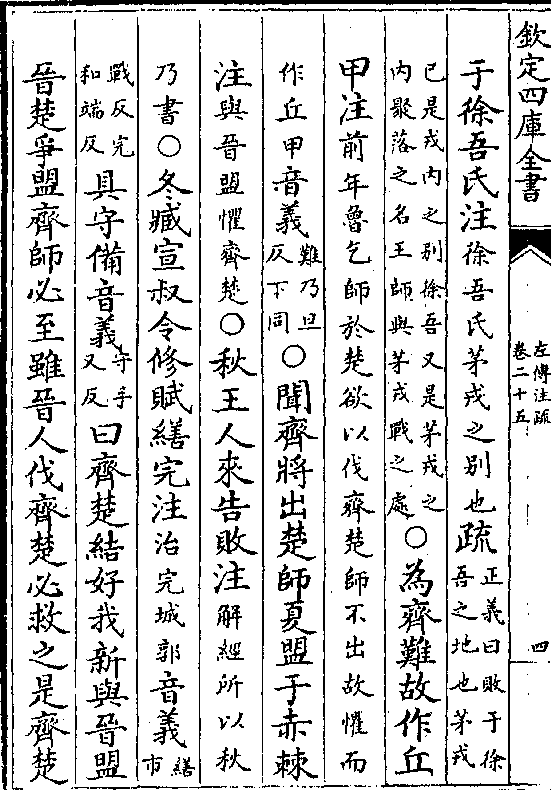 欽定四庫全書
左傳注疏
卷二十五
四
于徐吾氏注徐吾氏茅戎之别也疏正義曰敗于徐
吾之地也茅戎
已是戎内之别徐吾又是茅戎之
内聚落之名王師與茅戎戰之處
○為齊難故作丘
甲注前年魯乞師於楚欲以伐齊楚師不出故懼而
作丘甲音義難乃旦
反下同
○聞齊將出楚師夏盟于赤棘
注與晉盟懼齊楚○秋王人來告敗注解經所以秋
乃書○冬臧宣叔令修賦繕完注治完城郭音義繕
市
戰反完
和端反
具守備音義守手
又反
曰齊楚結好我新與晉盟
晉楚爭盟齊師必至雖晉人伐齊楚必救之是齊楚